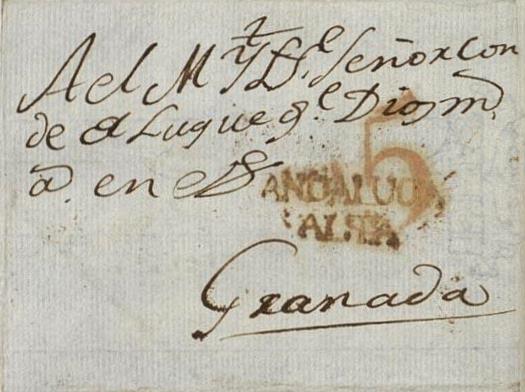 Al M Y Sr. Señor Con
de de Luque g.e Dios m.
a. en
5
ANDALUCIA
ALTA
Granada